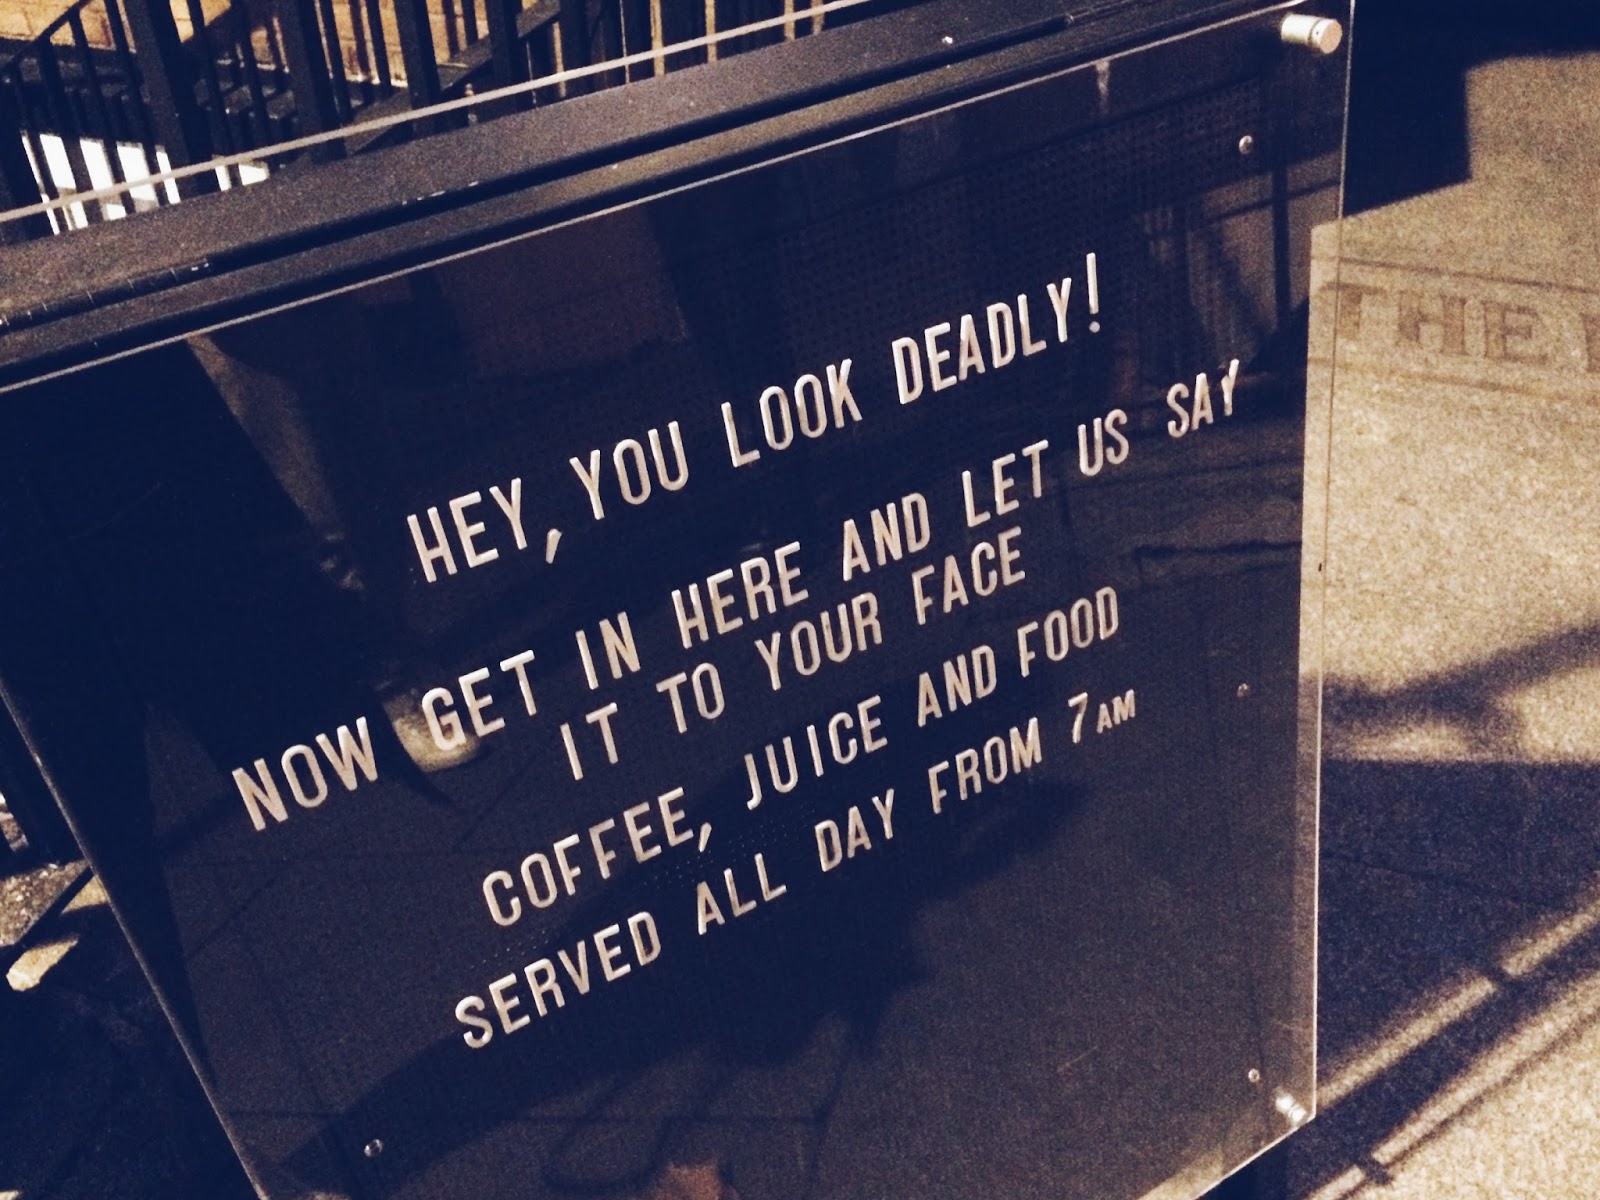 HEY, YOU LOOK DEADLY!
NOW GET IN HERE AND LET US SAY
IT TO YOUR FACE
COFFEE, JUICE AND FOOD
SERVED ALL DAY FROM 7AM
THE